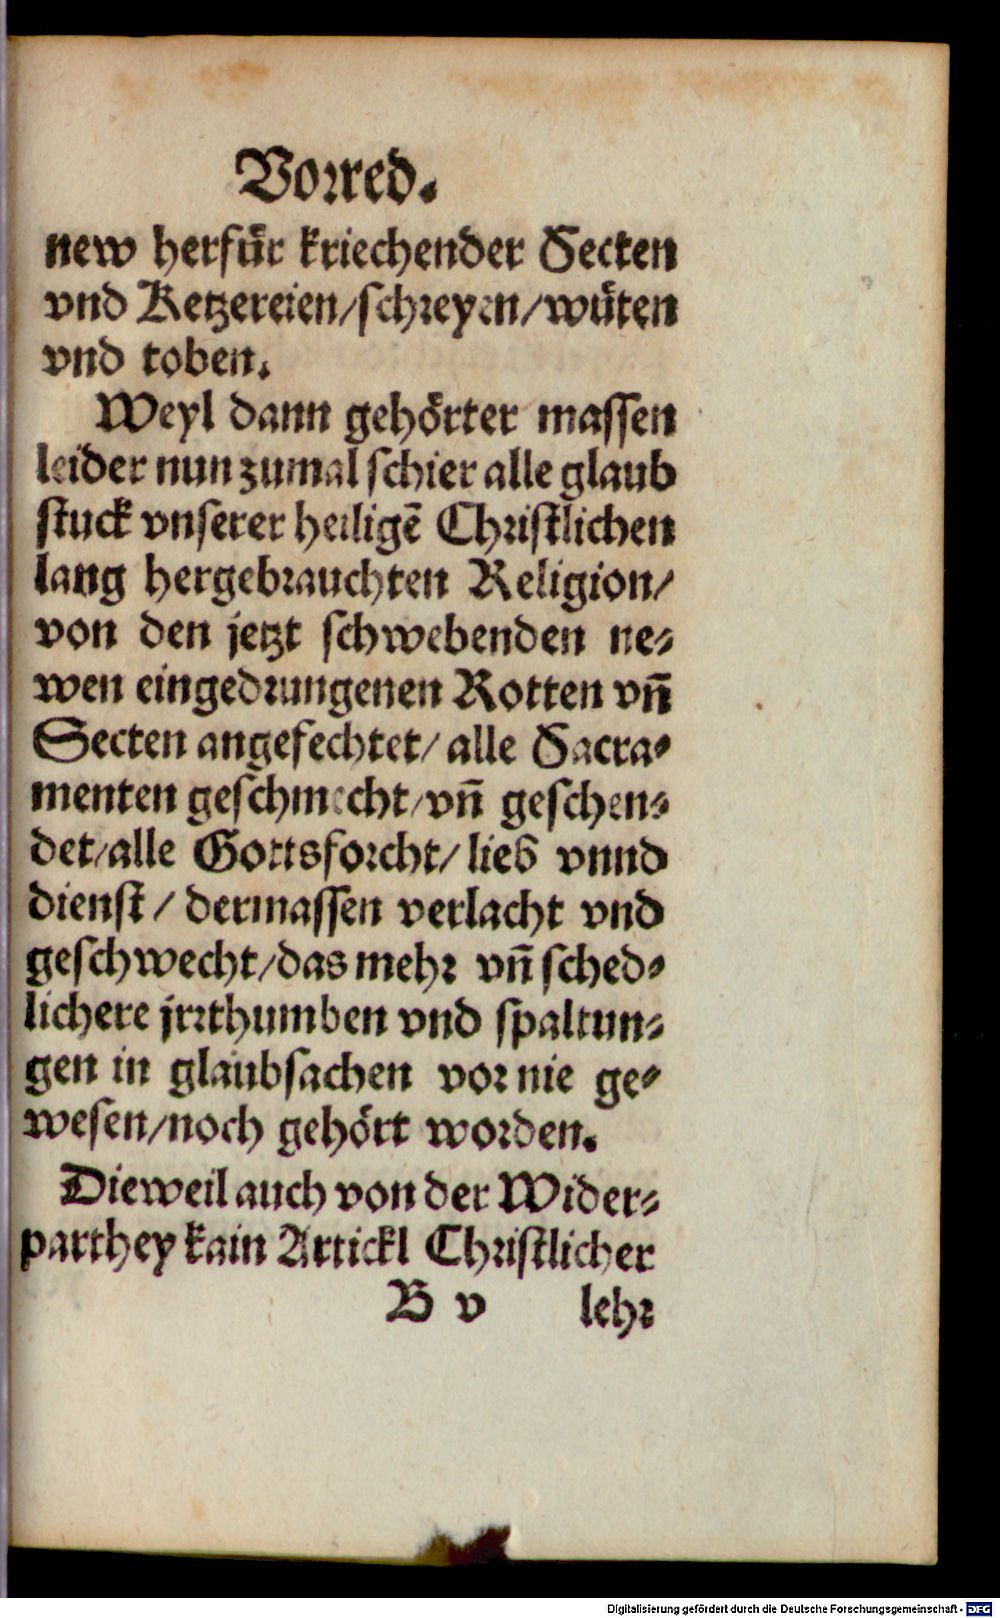 Vorred.
new herfür kriechender Secten
vnd Ketzereien/schreyen/wüten
vnd toben.
Weyl dann gehörter massen
leider nun zumal schier alle glaub
stuck vnserer heiligē Christlichen
lang hergebrauchten Religion/
von den jetzt schwebenden ne⸗
wen eingedrungenen Rotten vñ
Secten angefechtet/ alle Sacra⸗
menten geschmecht/vñ geschen⸗
det/alle Gottsforcht/ lieb vnnd
dienst/ dermassen verlacht vnd
geschwecht/das mehr vñ sched⸗
lichere jrrthumben vnd spaltun⸗
gen in glaubsachen vor nie ge⸗
wesen/noch gehört worden.
Dieweil auch von der Wider⸗
parthey kain Artickl Christlicher
B v lehr
Digitalisierung gefördert durch die Deutsche Forschungsgemeinschaft - DFG